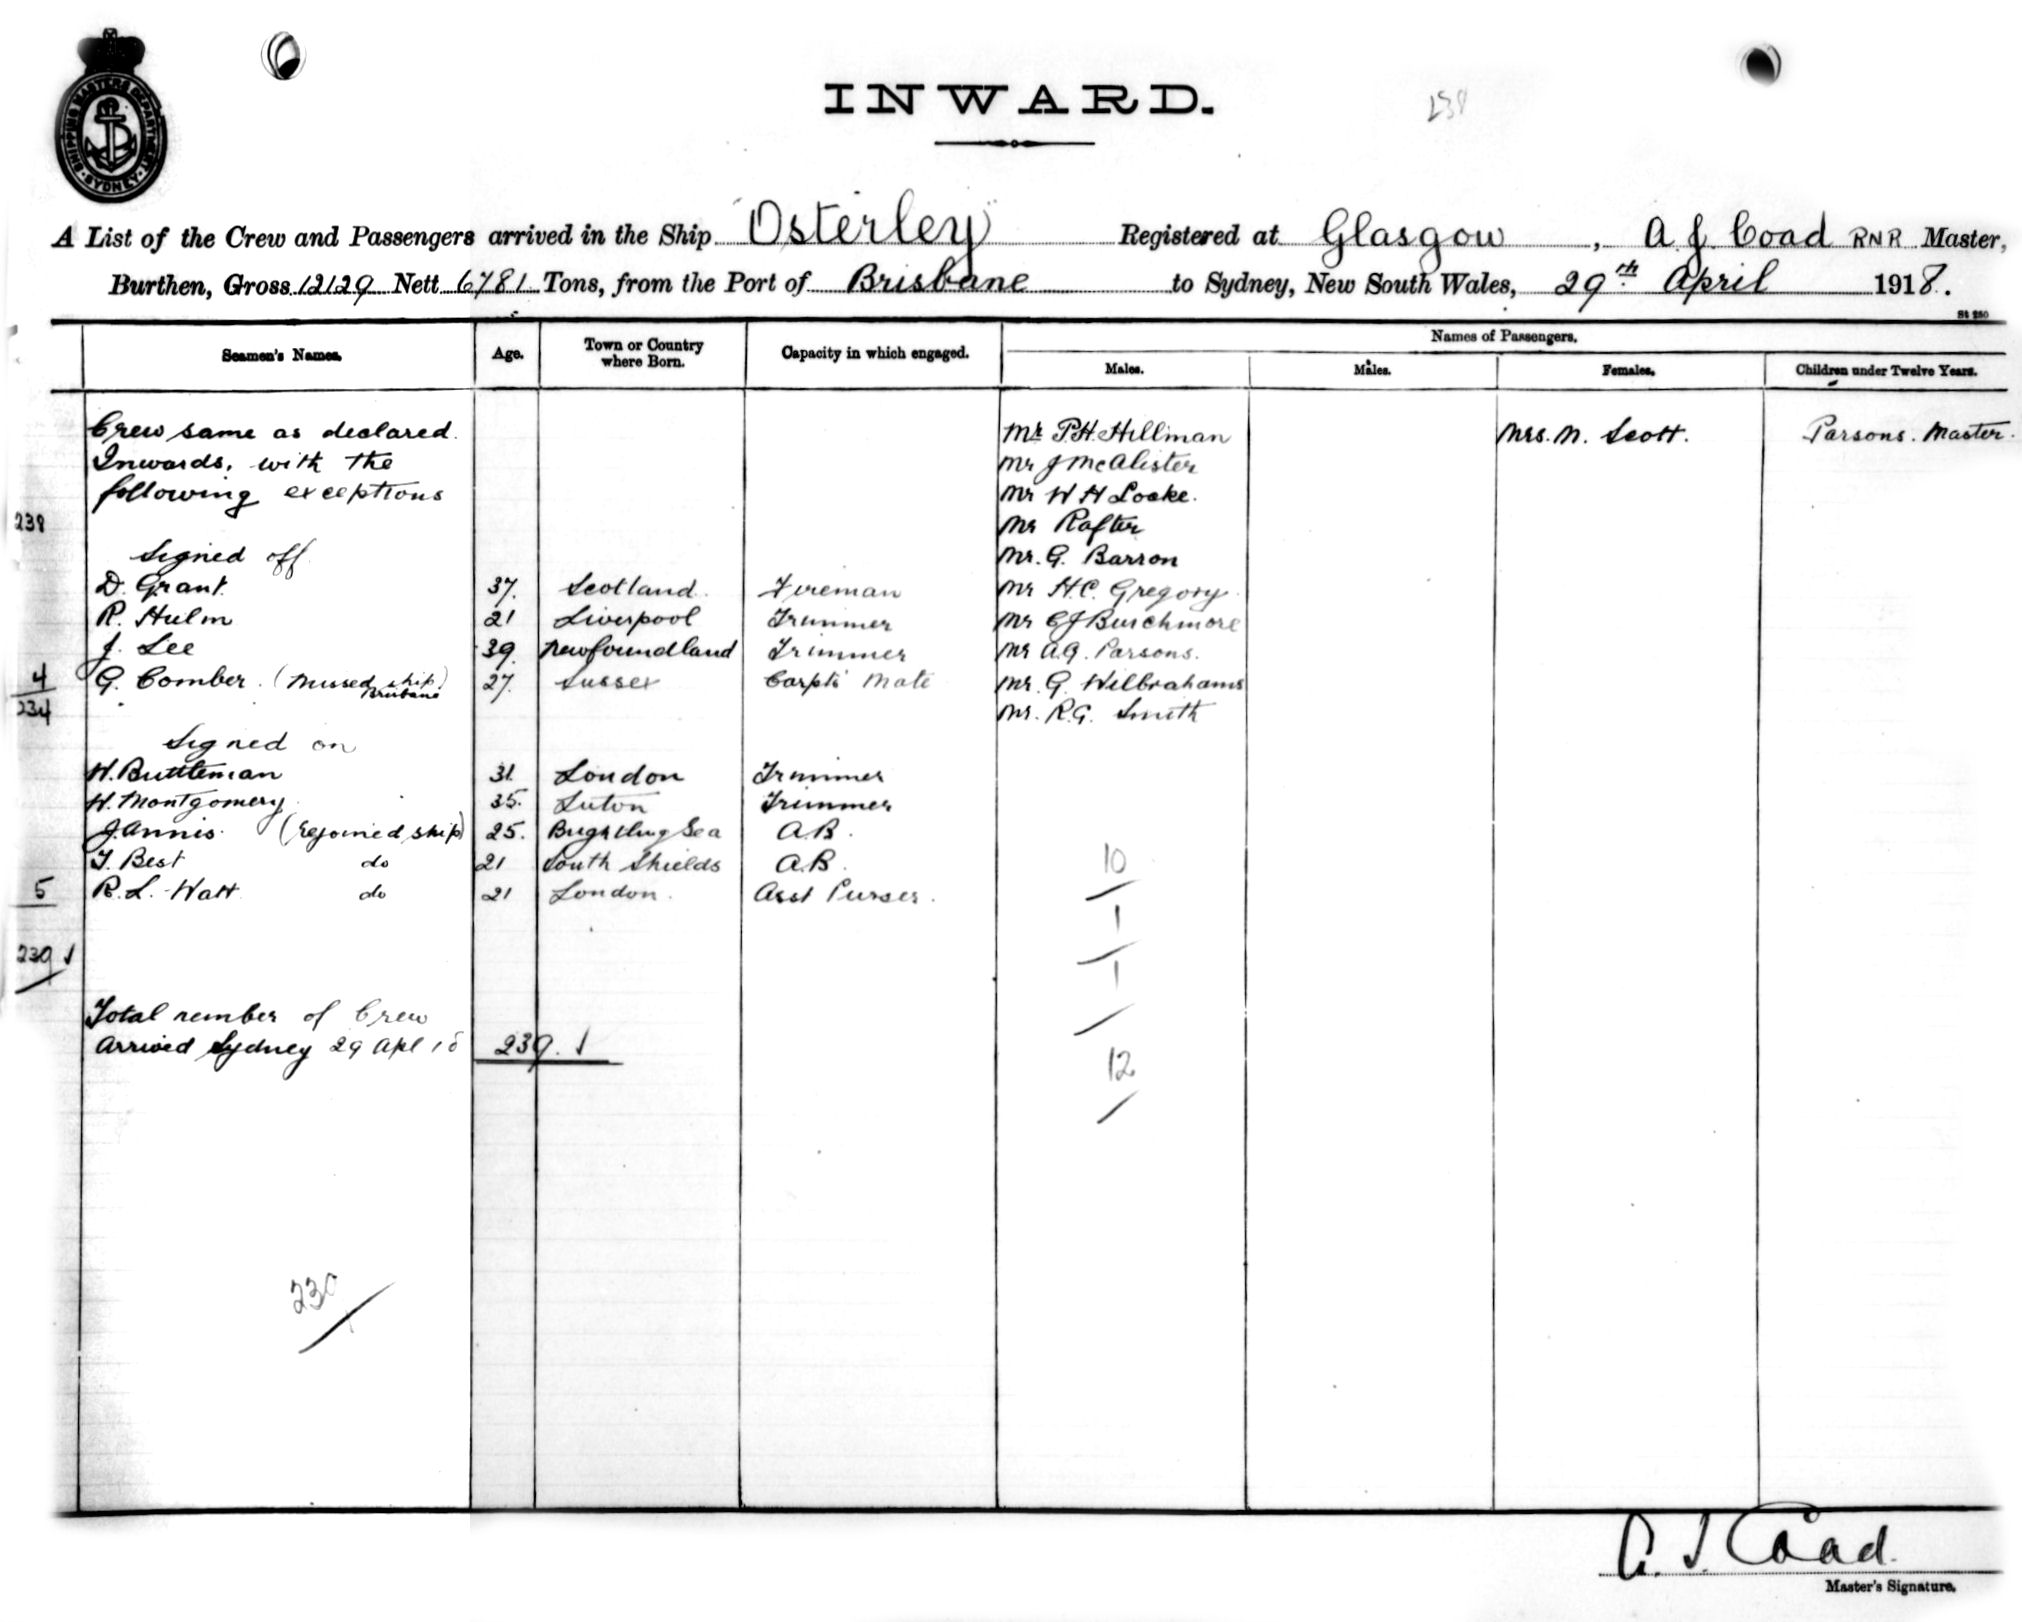 SHIPPING MASTERS DEPARTMENT · SYDNEY ·
INWARD.
A List of the Crew and Passengers arrived in the Ship Osterley Registered at Glasgow, A J Coad RNR Master,
Burthen, Gross 12129 Nett 6781 Tons, from the Port of Brisbane to Sydney, New South Wales, 29th April 1918.
St 250
Names of Passengers.
Seamen's Names. Age. Town or Country where Born. Capacity in which engaged. Males. Males. Females. Children under Twelve Years.
Crew same as declared. Mr P.H. Hillman Mrs. M. Scott. Parsons. Master.
Inwards, with the Mr J McAlister
following exceptions Mr W H Locke.
238 Mr Rafter
Signed off Mr. G. Barron
D. Grant. 37. Scotland. Fireman Mr H.C. Gregory
R. Hulm 21 Liverpool Trimmer Mr C J Burchmore
J. Lee 39. Newfoundland Trimmer Mr A.G. Parsons.
4 G. Comber. (missed ship Brisbane) 27. Sussex Carpts Mate Mr. G. Wilbrahams
234 Mr. R.G. Smith
Signed on
W. Buttleman 31. London Trimmer
W. Montgomery 35. Luton Trimmer
J. Annis. (rejoined ship) 25. Brightling Sea A.B.
T. Best do 21 South Shields A.B. 10
5 R. L. Watt do 21 London. Asst Purser.
1
239
1
Total number of Crew
Arrived Sydney 29 Apl 18 239.
12
A. J. Coad.
Master's Signature.